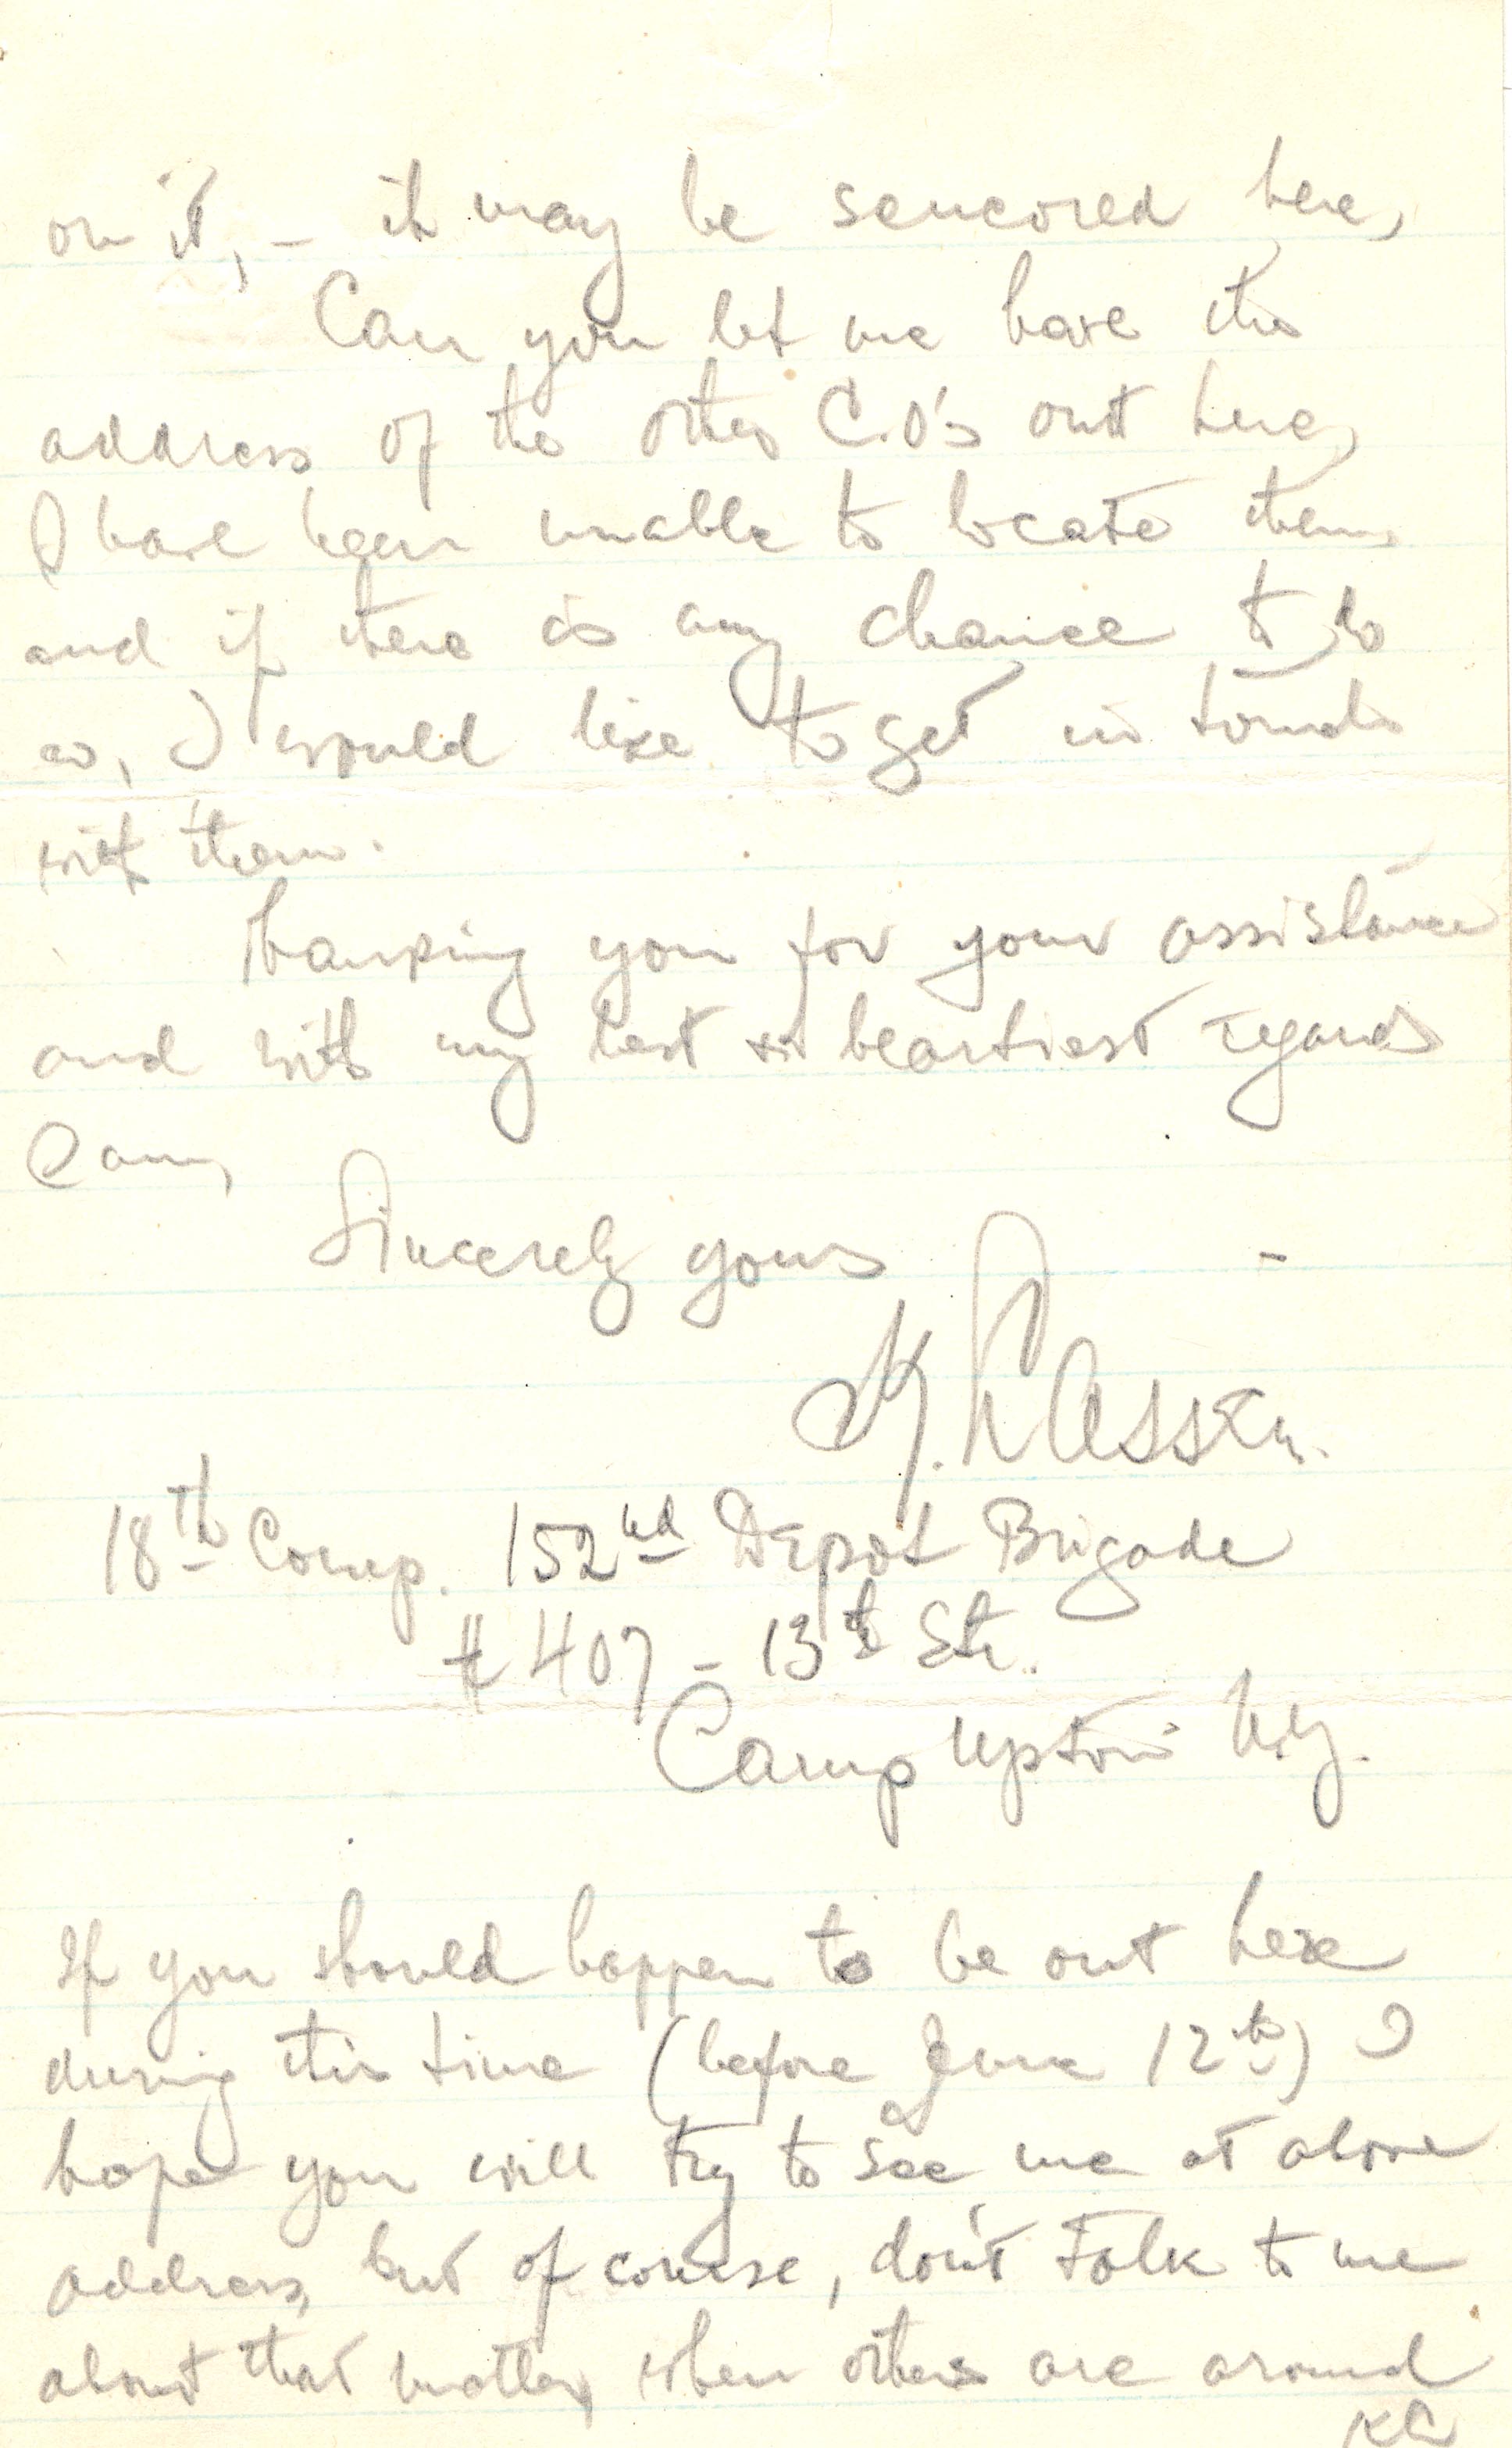 on it, - it may be sencored here,
Can you let me have the
address of the other C.O's out here,
I have been unable to locate them,
and if there is any chance to do
so, I would like to get in touch
with them.
Thanking you for your assistance
and with my best and heartiest regards
I am,
Sincerely yours
18th Comp. 152nd Depot Brigade
# 407 - 13th Str.
Camp Upton N.Y.
If you should happen to be out here
during this time (before June 12th) I
hope you will try to see me at above
address, but of course, don't talk to me
about that matter, when others are around